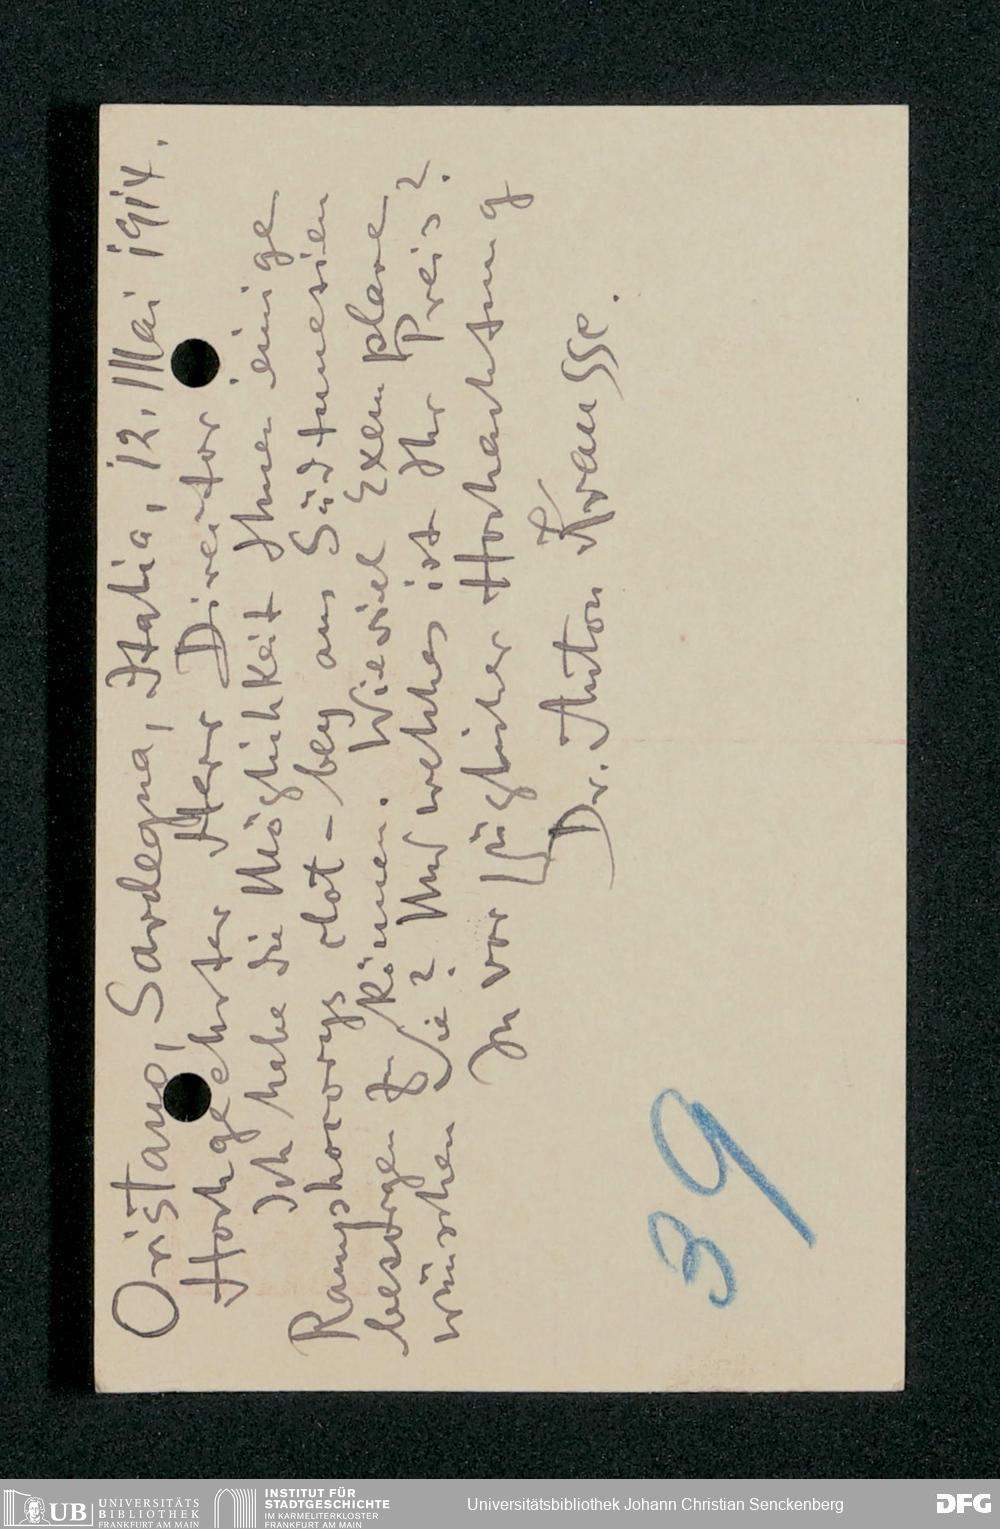 Oristano, Sardegna, Italia, 12. Mai 1914.
Hochgeehrter Herr Direktor
Ich habe die Möglichkeit Ihnen einige
Ramphocorys clot-bey aus Südtunesien
besorgen zu können. Wieviel Exemplare
wünschen Sie? Und welches ist Ihr Preis?
In vorzüglicher Hochachtung
Dr. Anton Krausse.
39
UB UNIVERSITÄTS
BIBLIOTHEK
FRANKFURT AM MAIN
INSTITUT FÜR
STADTGESCHICHTE
IM KARMELITERKLOSTER
FRANKFURT AM MAIN
Universitätsbibliothek Johann Christian Senckenberg
DFG